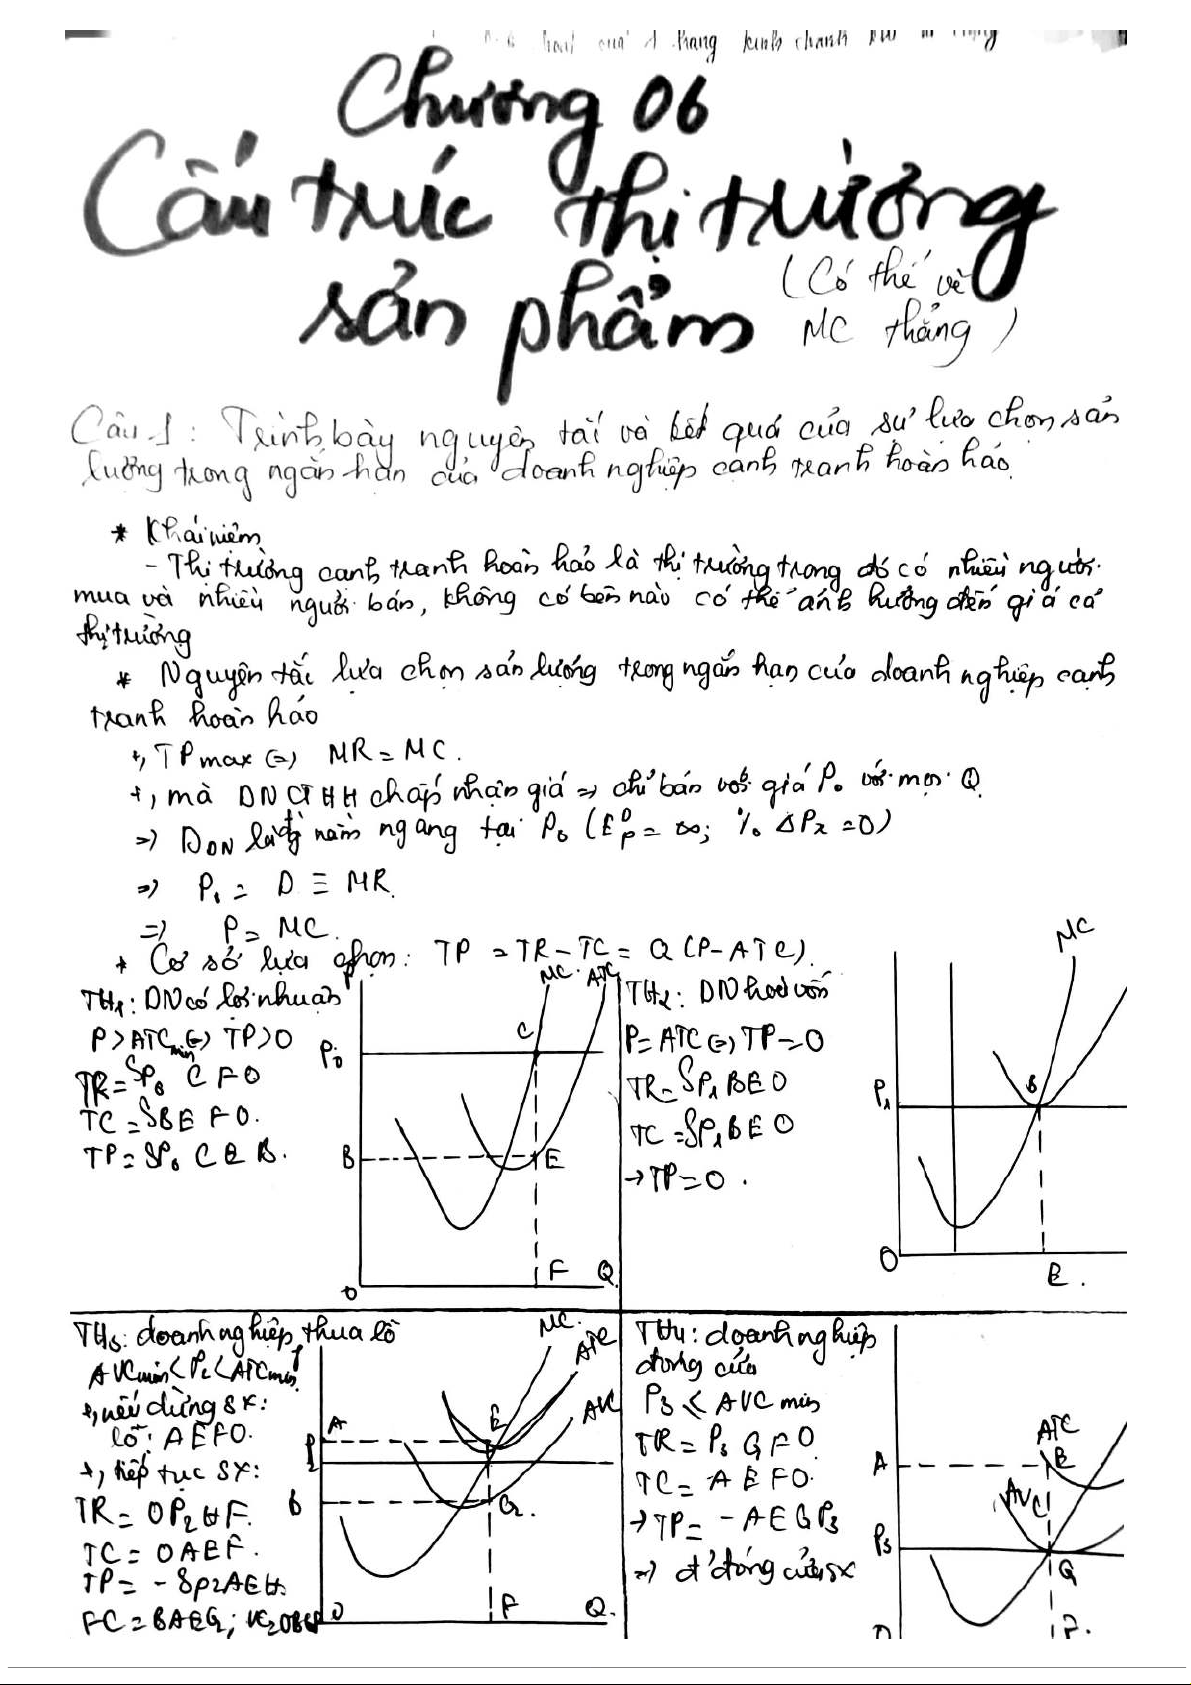 kinh chanh
Chương 06
Cấu trúc thị trường
sản phẩm
(Có thể vẽ
MC thẳng)
Câu 1: Trình bày nguyên tắc và kết quả của sự lựa chọn sản
lường trong ngắn hạn của doanh nghiệp cạnh tranh hoàn hảo
* Khái niệm
- Thị trường cạnh tranh hoàn hảo là thị trường trong đó có nhiều người
mua và nhiều người bán, không có bên nào có thể ảnh hưởng đến giá cả
thị trường
* Nguyên tắc lựa chọn sản lượng trong ngắn hạn của doanh nghiệp cạnh
tranh hoàn hảo
+, TP max (=) MR = MC.
+, mà DN CTHH chấp nhận giá => chỉ bán với giá P₀ với mọi Q
=> D_DN là đg nằm ngang tại P₀ (E^D_P = ∞; % ΔPx = 0)
=> P₁ = D ≡ MR.
=> P = MC.
* Cơ sở lựa chọn: TP = TR - TC = Q (P - ATC).
TH₁: DN có lợi nhuận
P > ATC min (=) TP > 0
TR = SP₀ C F O
TC = SBE F O.
TP = SP₀ C E B.
P
MC.
ATC
P₀
C
B
E
F
Q
0
TH₂: DN hoà vốn
P = ATC (=) TP = 0
TR = SP₁ B E O
TC = SP₁ B E O
→ TP = 0.
MC
P₁
B
O
E.
TH₃: doanh nghiệp thua lỗ
AVC min < P₂ < ATC min
+, nếu dừng SX:
lỗ: AEFO.
+, tiếp tục SX:
TR = OP₂HF.
TC = OAEF.
TP = - SP₂AEH.
FC = BAEG; VC = OBGF
MC.
ATC
AVC
A
E
P₂
B
G
0
F
Q.
TH₄: doanh nghiệp
đóng cửa
P₃ < AVC min
TR = P₃ G F O
TC = A E F O.
→ TP = - A E G P₃
=> đóng cửa sx
ATC
A
E
AVC
P₃
G
F.